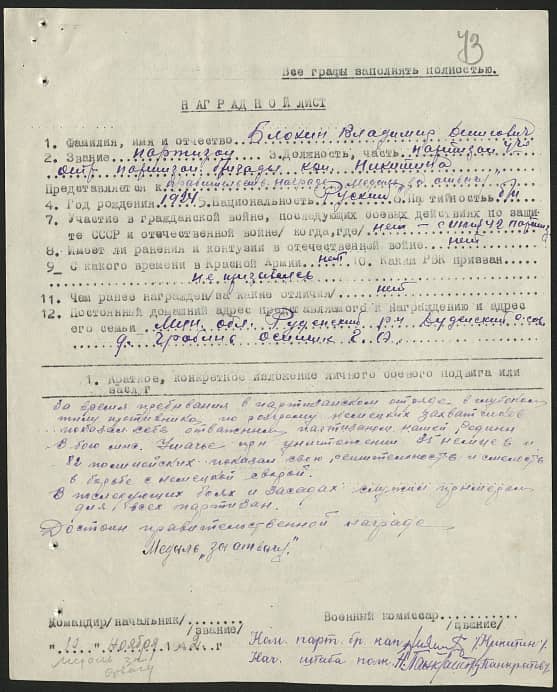 73
Все графы заполнять полностью.
НАГРАДНОЙ ЛИСТ
1. Фамилия, имя и отчество Блохин Владимир Денисович
2. Звание партизан 3. Должность, часть партизан
отр. партизан бригады кап. Никитина
Представляется к правительств. награде медаль "за отвагу"
4. Год рождения 1924 5. Национальность Русский 6. Партийность б/п
7. Участие в гражданской войне, последующих боевых действиях по защи-
те СССР и отечественной войне/ когда, где/ нет - с 42 партиз
8. Имеет ли ранения и контузии в отечественной войне нет
9. С какого времени в Красной Армии нет 10. Каким РВК призван
не призывался
11. Чем ранее награжден/за какие отличия/ нет
12. Постоянный домашний адрес представляемого к награждению и адрес
его семьи Мин. обл. Руденский р-н
д.
1. Краткое, конкретное изложение личного боевого подвига или
заслуг
За время пребывания в партизанском отряде в глубоком
тылу противника по разгрому немецких захватчиков
показал себя отважным партизаном нашей Родины
В бою при уничтожении немцев и
82 полицейских показал свою решительность и смелость
в борьбе с немецкой сворой.
В последующих боях и засадах служил примером
для всех партизан.
Достоин правительственной награде
Медаль "за отвагу".
Командир/начальник/ Военный комиссар
/звание/ /звание/
ноября г
медаль за
отвагу
Ком. парт. бр. кап. /Никитин/
Нач. штаба полк. /Панкратов/